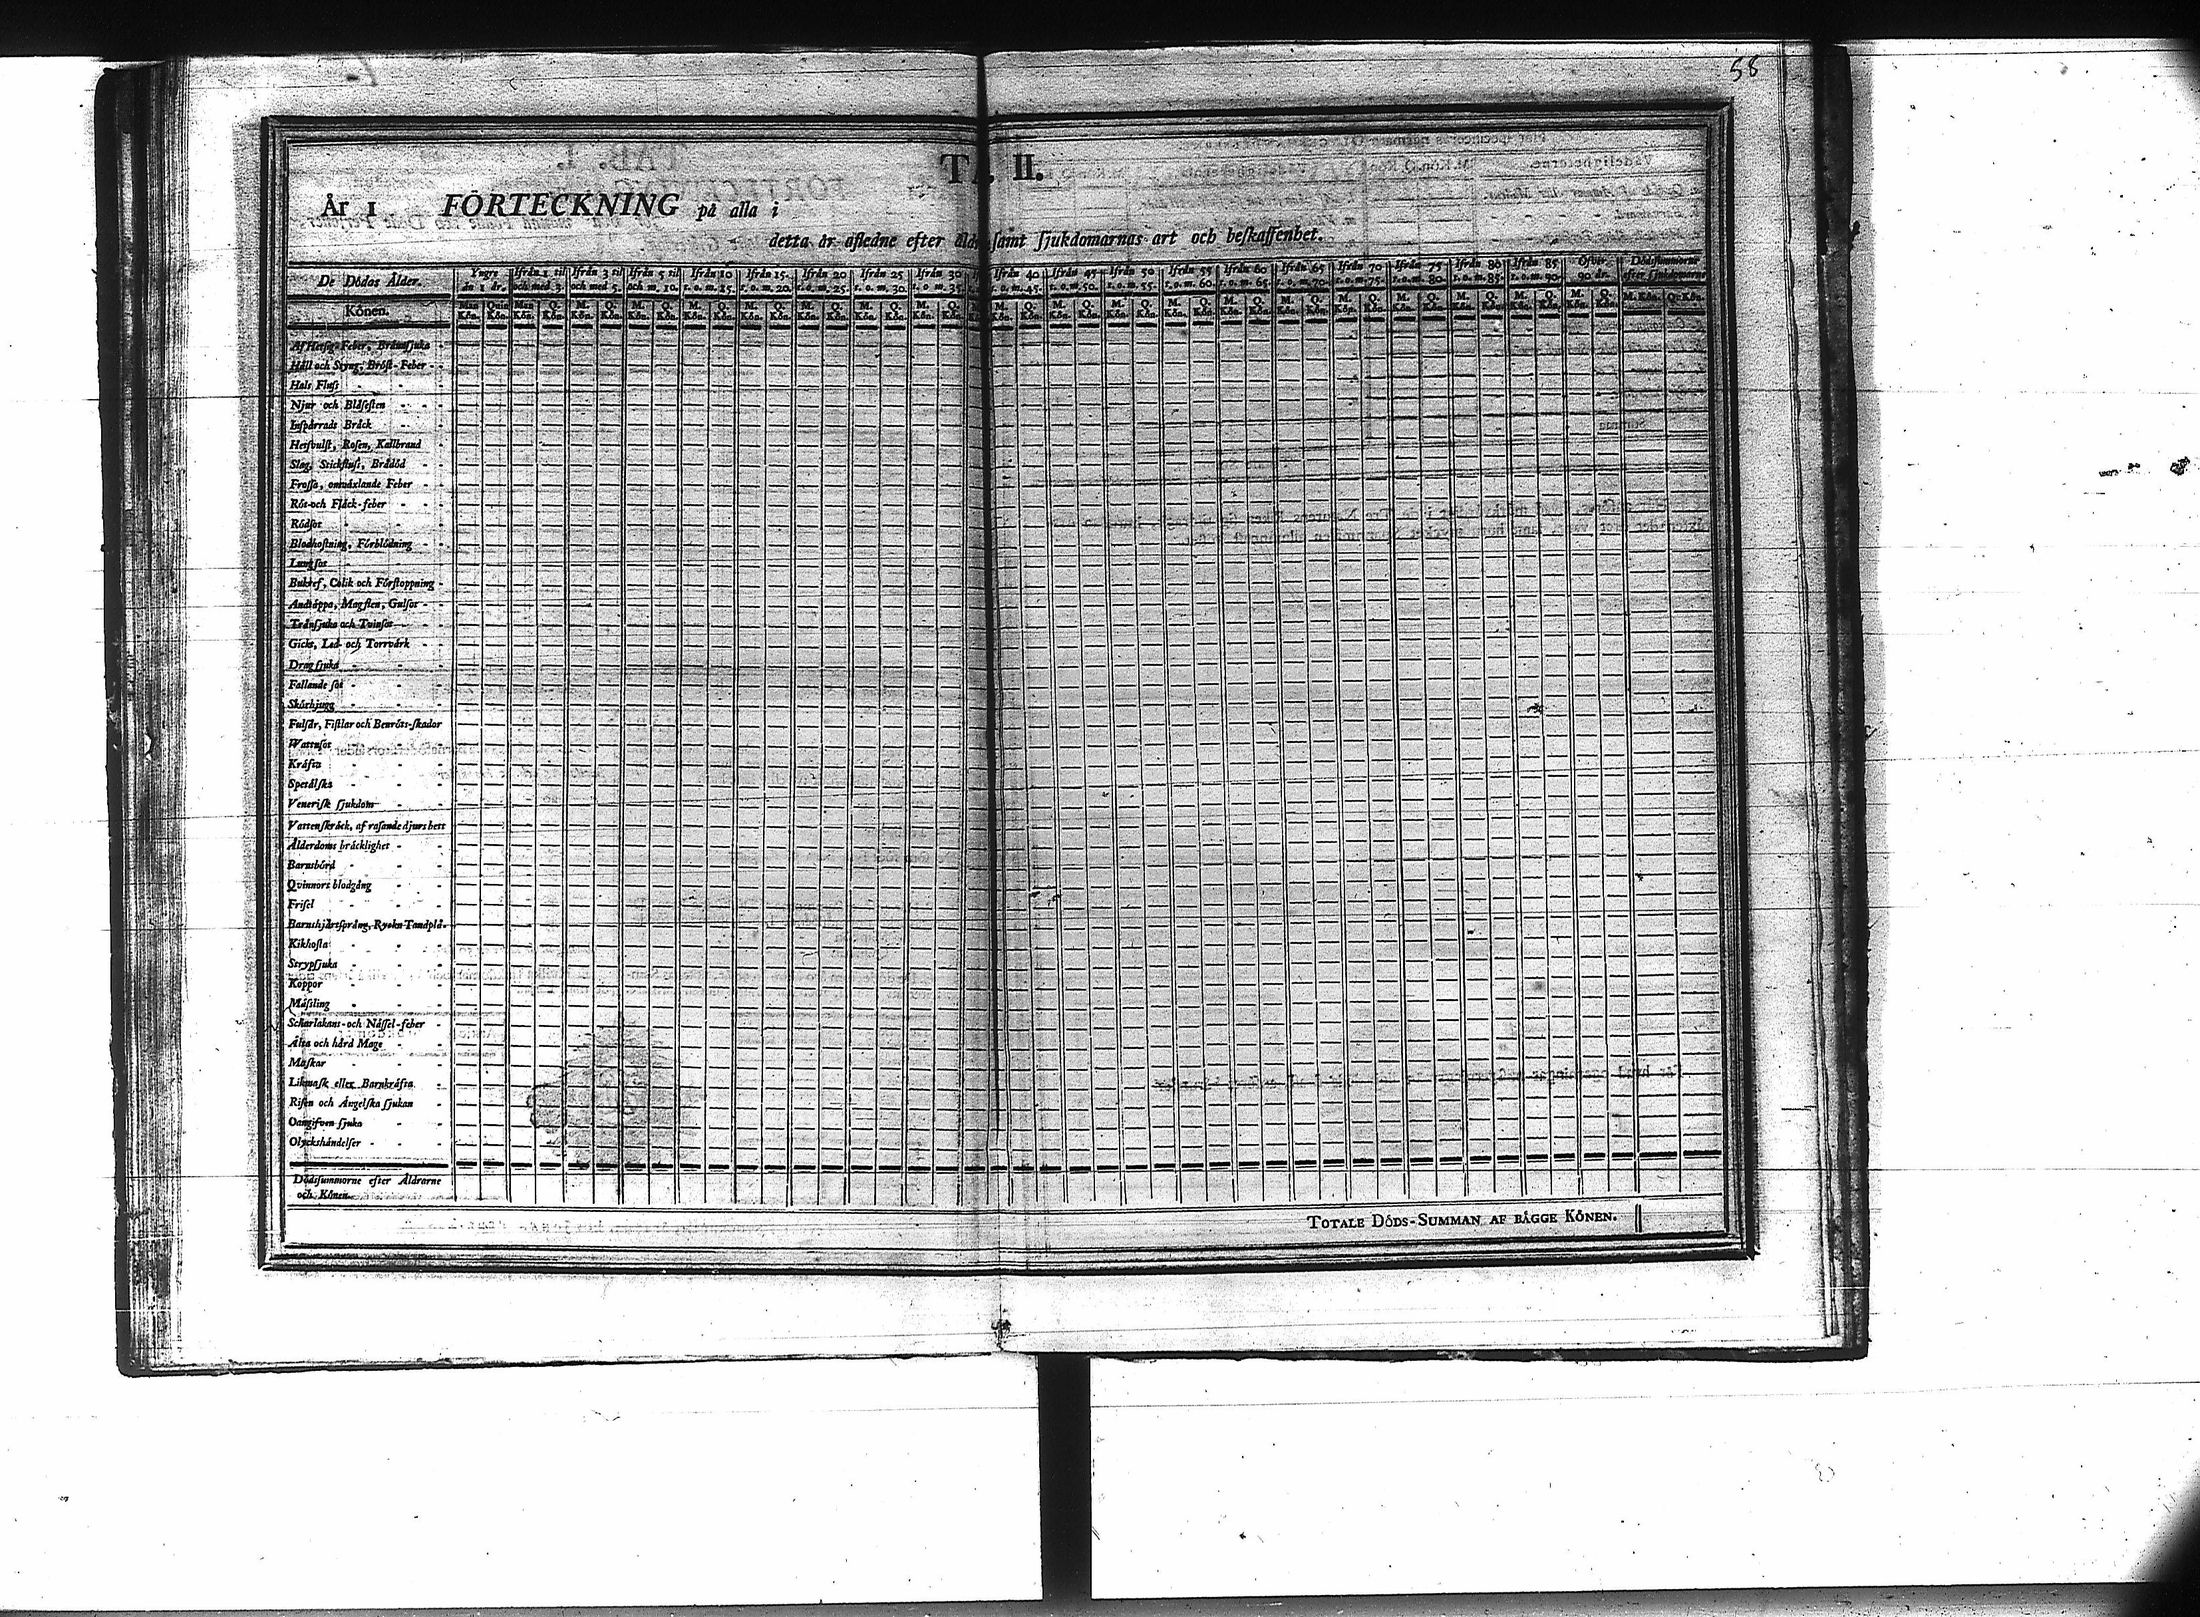 58
TA II.
År 1 FÖRTECKNING på alla i
detta år afledne efter åldr samt ſjukdomarnas art och beſkaffenhet.
De Dödas Ålder. Yngre än 1 år. Ifrån 1 til och med 3. Ifrån 3 til och med 5. Ifrån 5 til och m. 10. Ifrån 10 t. o. m. 15. Ifrån 15. t. o. m. 20. Ifrån 20 t. o. m. 25. Ifrån 25 t. o. m. 30. Ifrån 30 t. o m. 35. Ifrån 40 t. o. m. 45. Ifrån 45 t. o. m. 50. Ifrån 50 t. o. m. 55. Ifrån 55 t. o. m. 60. Ifrån 60 t. o. m. 65. Ifrån 65 t. o. m. 70. Ifrån 70 t. o. m. 75. Ifrån 75 t. o. m. 80. Ifrån 80 t. o. m. 85. Ifrån 85 t. o. m. 90. Öfver 90 år. Dödsſummorne efter ſjukdomarne
Könen. Man Kön. Quin Kön. Man Kön. Q. Kön. M. Kön. Q. Kön. M. Kön. Q. Kön. M. Kön. Q. Kön. M. Kön. Q. Kön. M. Kön. Q. Kön. M. Kön. Q. Kön. M. Kön. Q. Kön. M. Kön. Q. Kön. M. Kön. Q. Kön. M. Kön. Q. Kön. M. Kön. Q. Kön. M. Kön. Q. Kön. M. Kön. Q. Kön. M. Kön. Q. Kön. M. Kön. Q. Kön. M. Kön. Q. Kön. M. Kön. Q. Kön. M. Kön. Q. Kön. M. Kön. Q. Kön.
Af Hetſig-Feber, Brännſjuka
Håll och Styng, Bröſt-Feber
Hals Fluſs
Njur och Blåſeſten
Inſpärradt Bråck
Hetſvulſt, Roſen, Kallbrand
Slag, Stickfluſs, Brådöd
Froſſa, omväxlande Feber
Röt-och Fläck-feber
Rödſot
Blodhoſtning, Förblödning
Lungſot
Bukref, Colik och Förſtoppning
Andtäppa, Magſten, Gulſot
Tränſjuka och Tvinſot
Gickt, Led- och Torrvärk
Dragſjuka
Fallande ſot
Skörbjugg
Fulſår, Fiſtlar och Benröts-ſkador
Wattuſot
Kräfta
Spetälſka
Veneriſk ſjukdom
Vattenſkräck, af raſande djurs bett
Ålderdoms bräcklighet
Barnsbörd
Qvinnors blodgång
Friſel
Barnshjärtſprång, Ryck o Tandplå.
Kikhoſta
Strypſjuka
Koppor
Mäſsling
Scharlakans-och Näſſel-feber
Älta och hård Mage
Maſkar
Likmaſk eller Barnkräfta
Riſen och Ängelſka ſjukan
Oangifven ſjuka
Olyckshändelſer
Dödsſummorne efter Åldrarne
och Könen
TOTALE DÖDS-SUMMAN AF BÄGGE KÖNEN.